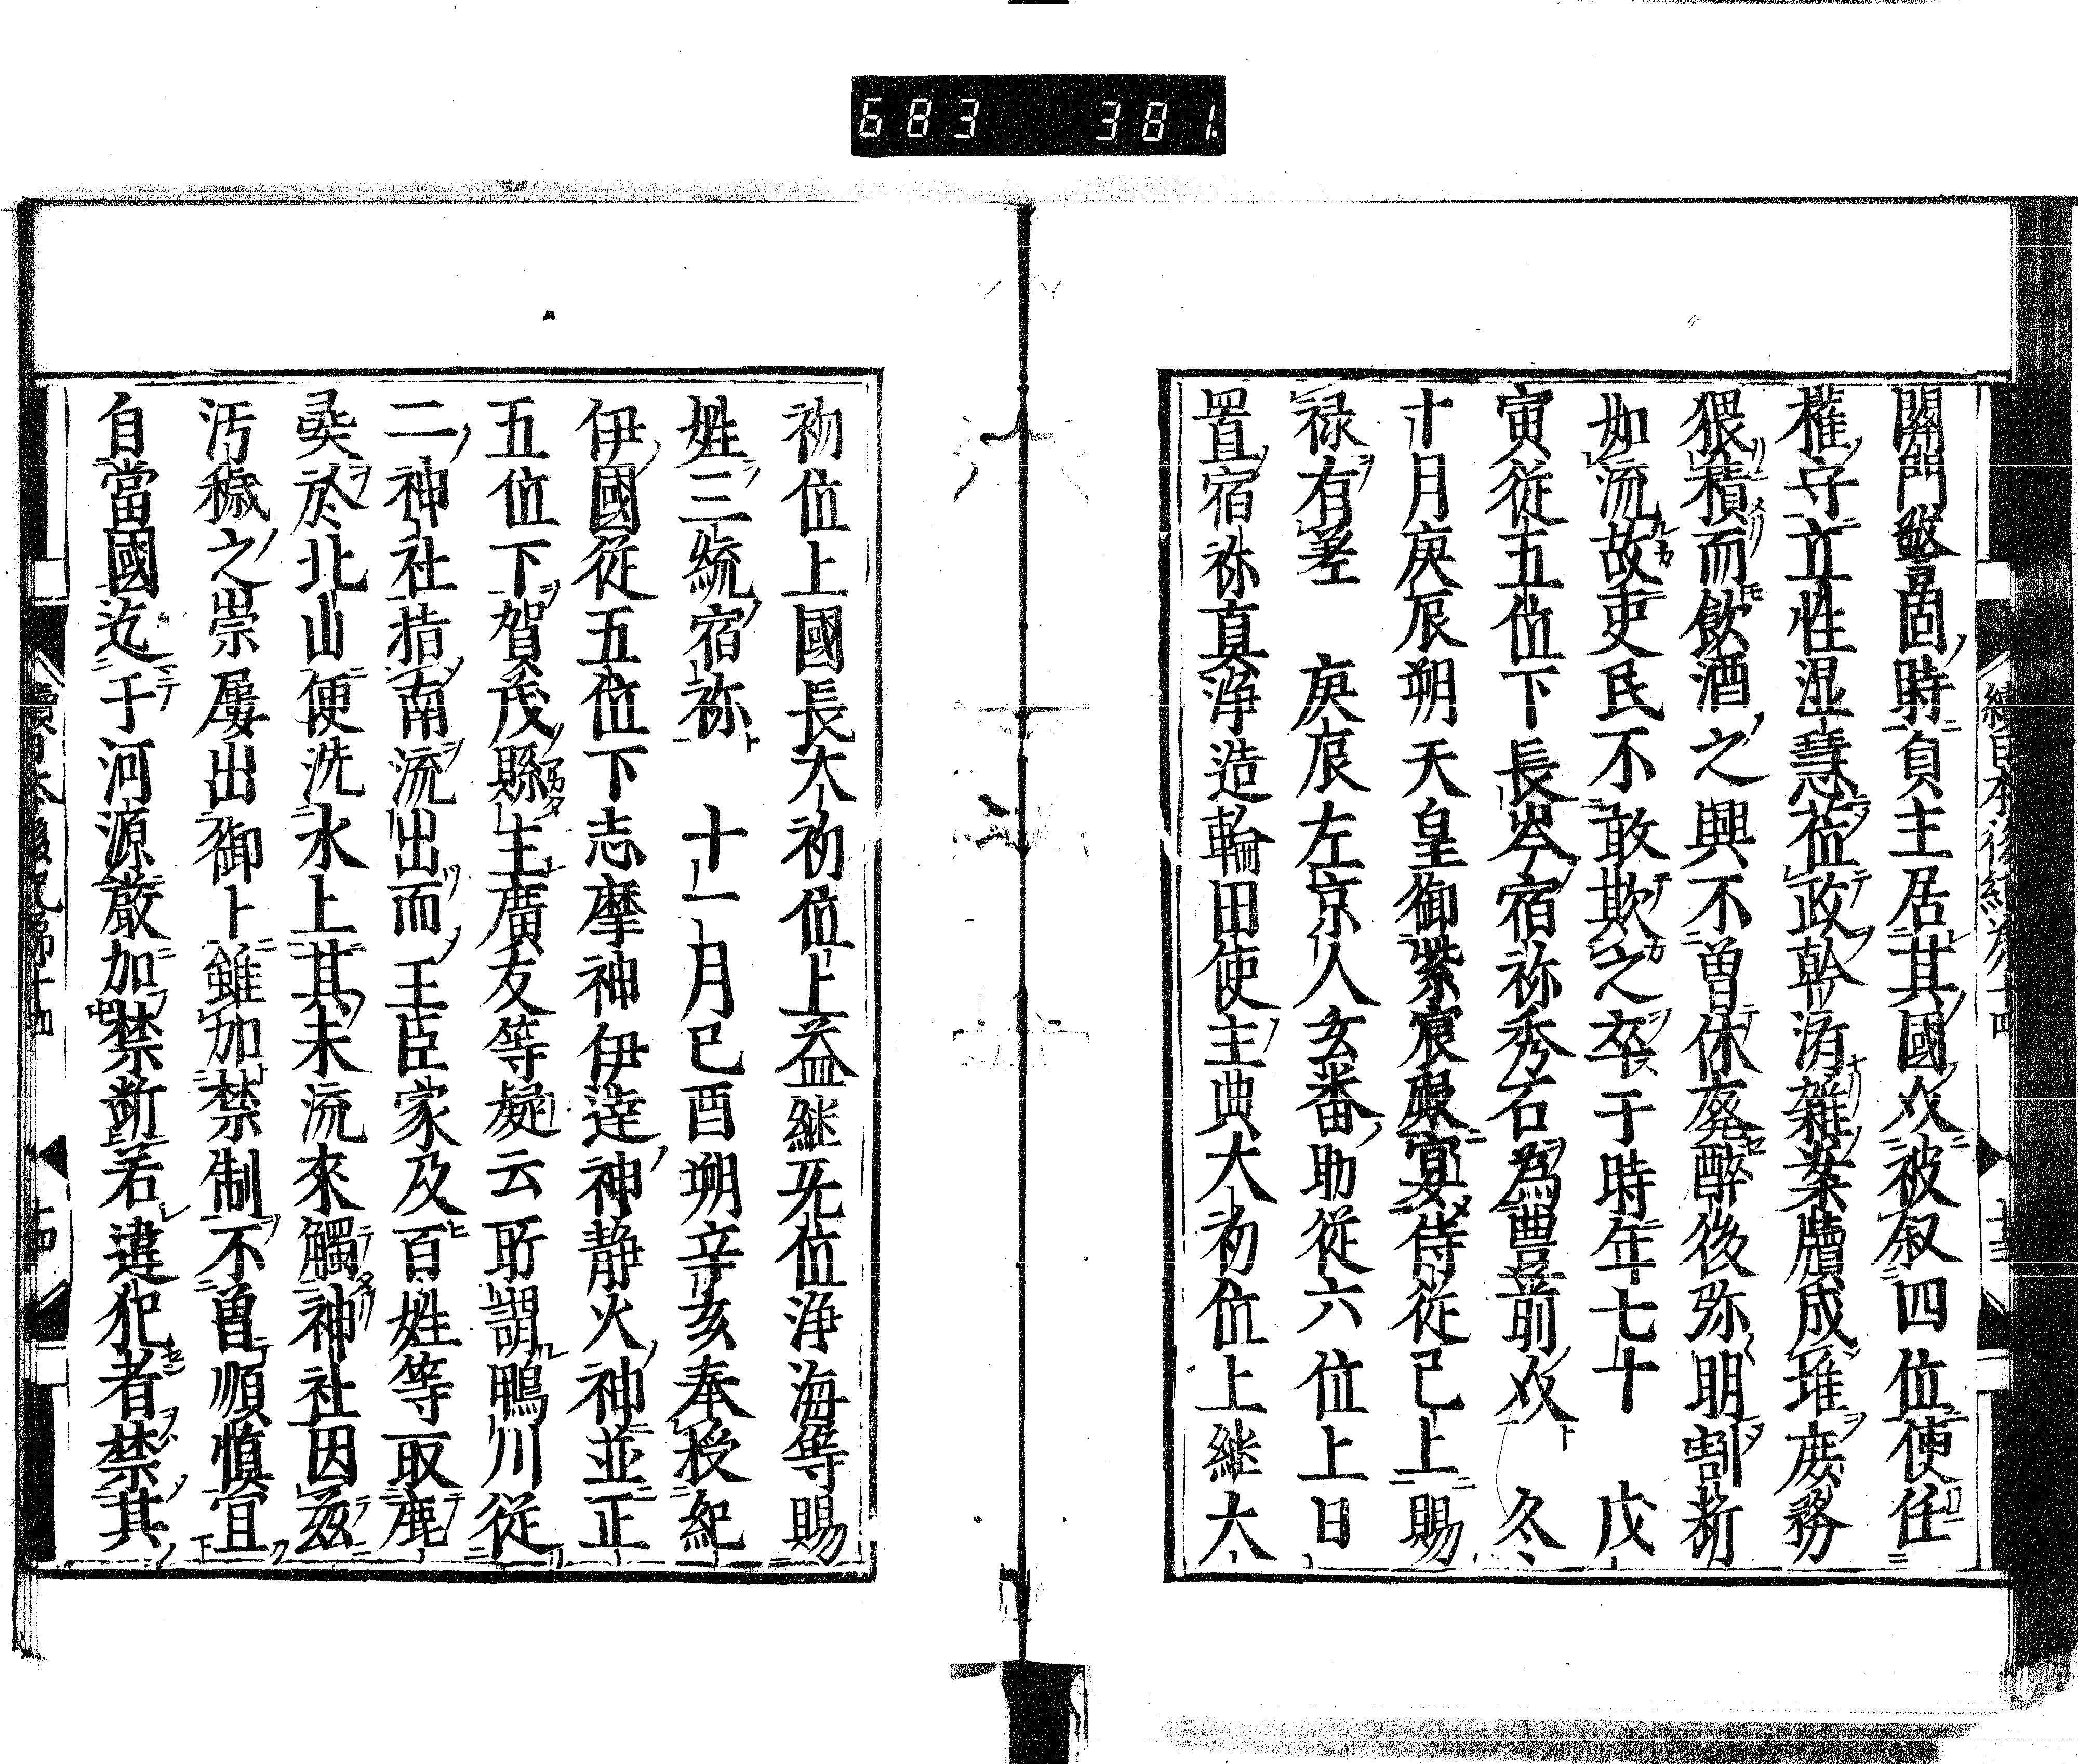 683 381
關門警固時負主居其國以被叙四位使任
權守立性湿慧莅政幹済雜案牘成堆庶務
猥積而飲酒之興不曽休廃醉後弥明割断
如流故吏民不敢欺之卒于時年七十 戊
寅従五位下長岑宿祢秀名為豊前以 冬
十月庚辰朔天皇御紫宸殿宴侍従已上賜
禄有差 庚辰左京人玄番助従六位上日
置宿祢真浄造輪田使主典大初位上継大
初位上國長大初位上益継无位浄海等賜
姓三統宿祢 十一月己酉朔辛亥奉授紀
伊國従五位下志摩神伊達神静火神並正
五位下賀茂縣主廣友等疑云所謂鴨川従
二神社指南流出而王臣家及百姓等取鹿
彘於北山便洗水上其末流來觸神社因茲
汚穢之崇屢出御卜雖加禁制不曽順慎宜
自當國迄于河源厳加禁断若違犯者禁其